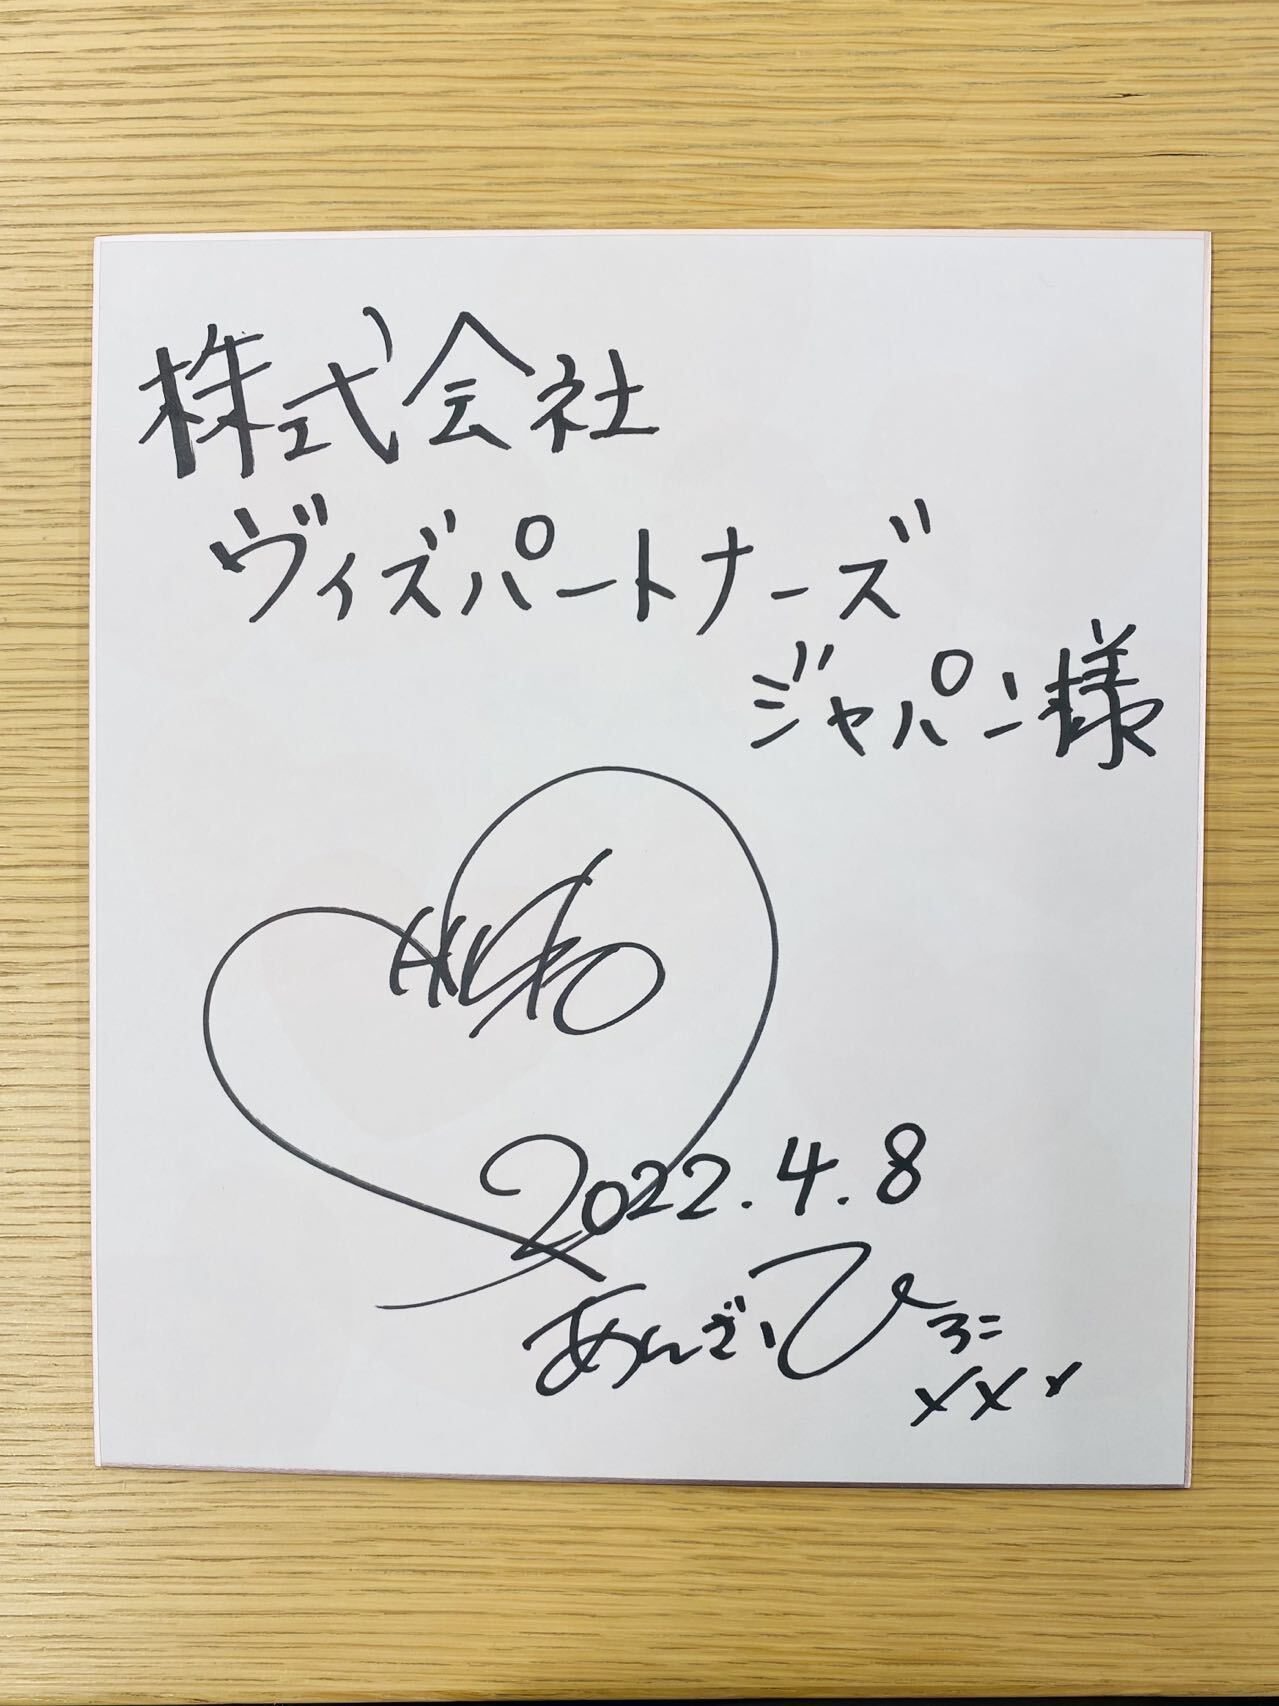 株式会社
ヴィズパートナーズ
ジャパン様
2022.4.8
あんざいひろこ
xxx